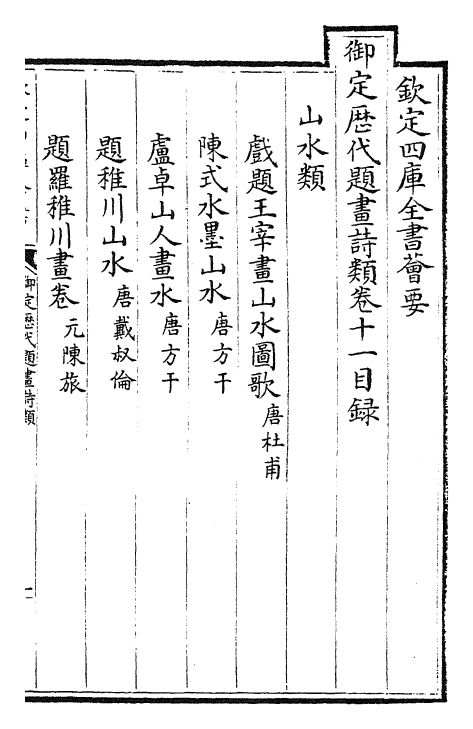 欽定四庫全書薈要
御定歷代題畫詩類卷十一目録
山水類
戲題王宰畫山水圖歌 唐杜甫
陳式水墨山水 唐方干
盧卓山人畫水 唐方干
題稚川山水 唐戴叔倫
題羅稚川畫卷 元陳旅
御定歷代題畫詩類
一